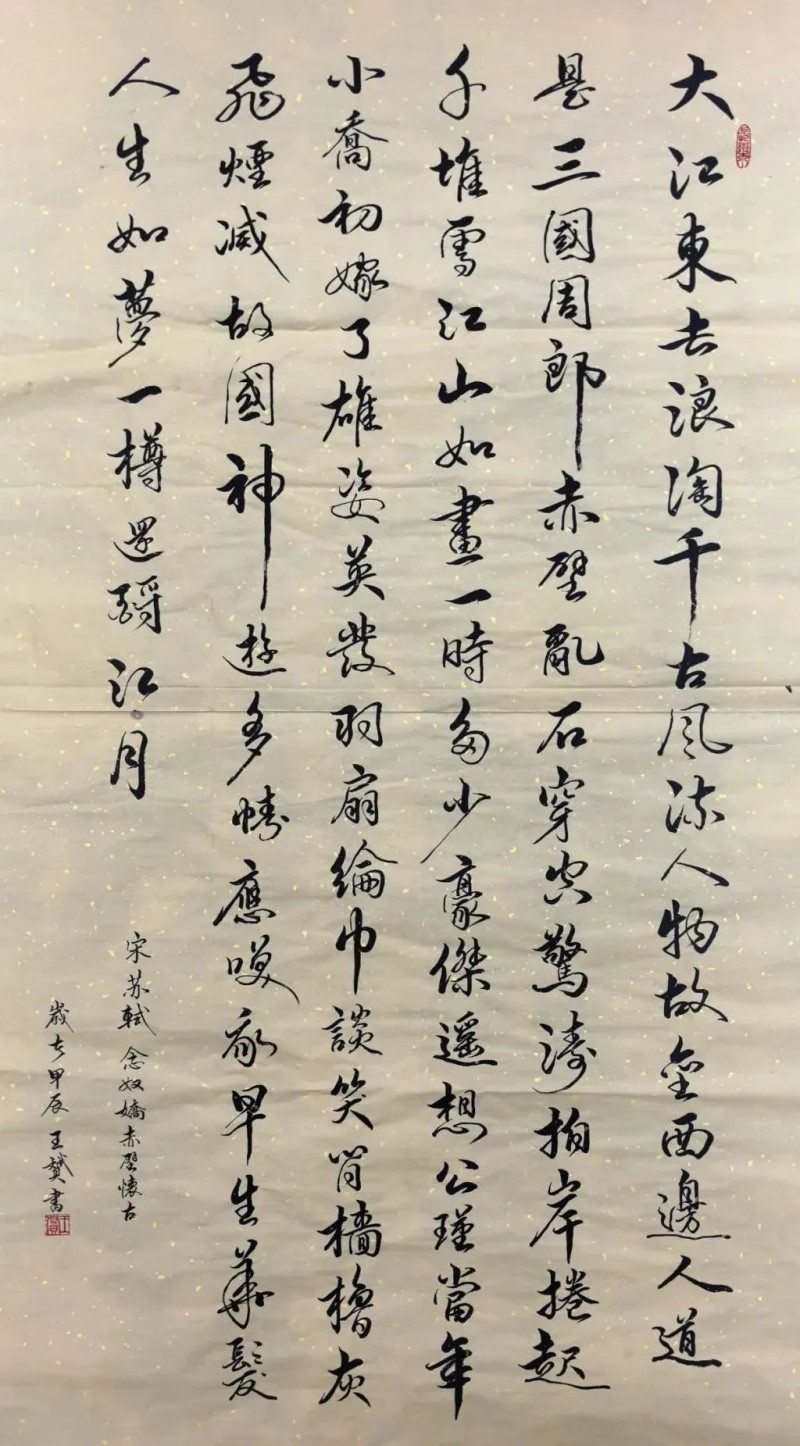 大江東去浪淘千古風流人物故壘西邊人道
是三國周郎赤壁亂石穿空驚濤拍岸捲起
千堆雪江山如畫一時多少豪傑遥想公瑾當年
小喬初嫁了雄姿英發羽扇綸巾談笑間檣櫓灰
飛煙滅故國神遊多情應嘆我早生華髮
人生如夢一樽還酹江月
宋苏軾念奴嬌赤壁懷古
歲在甲辰王赟書